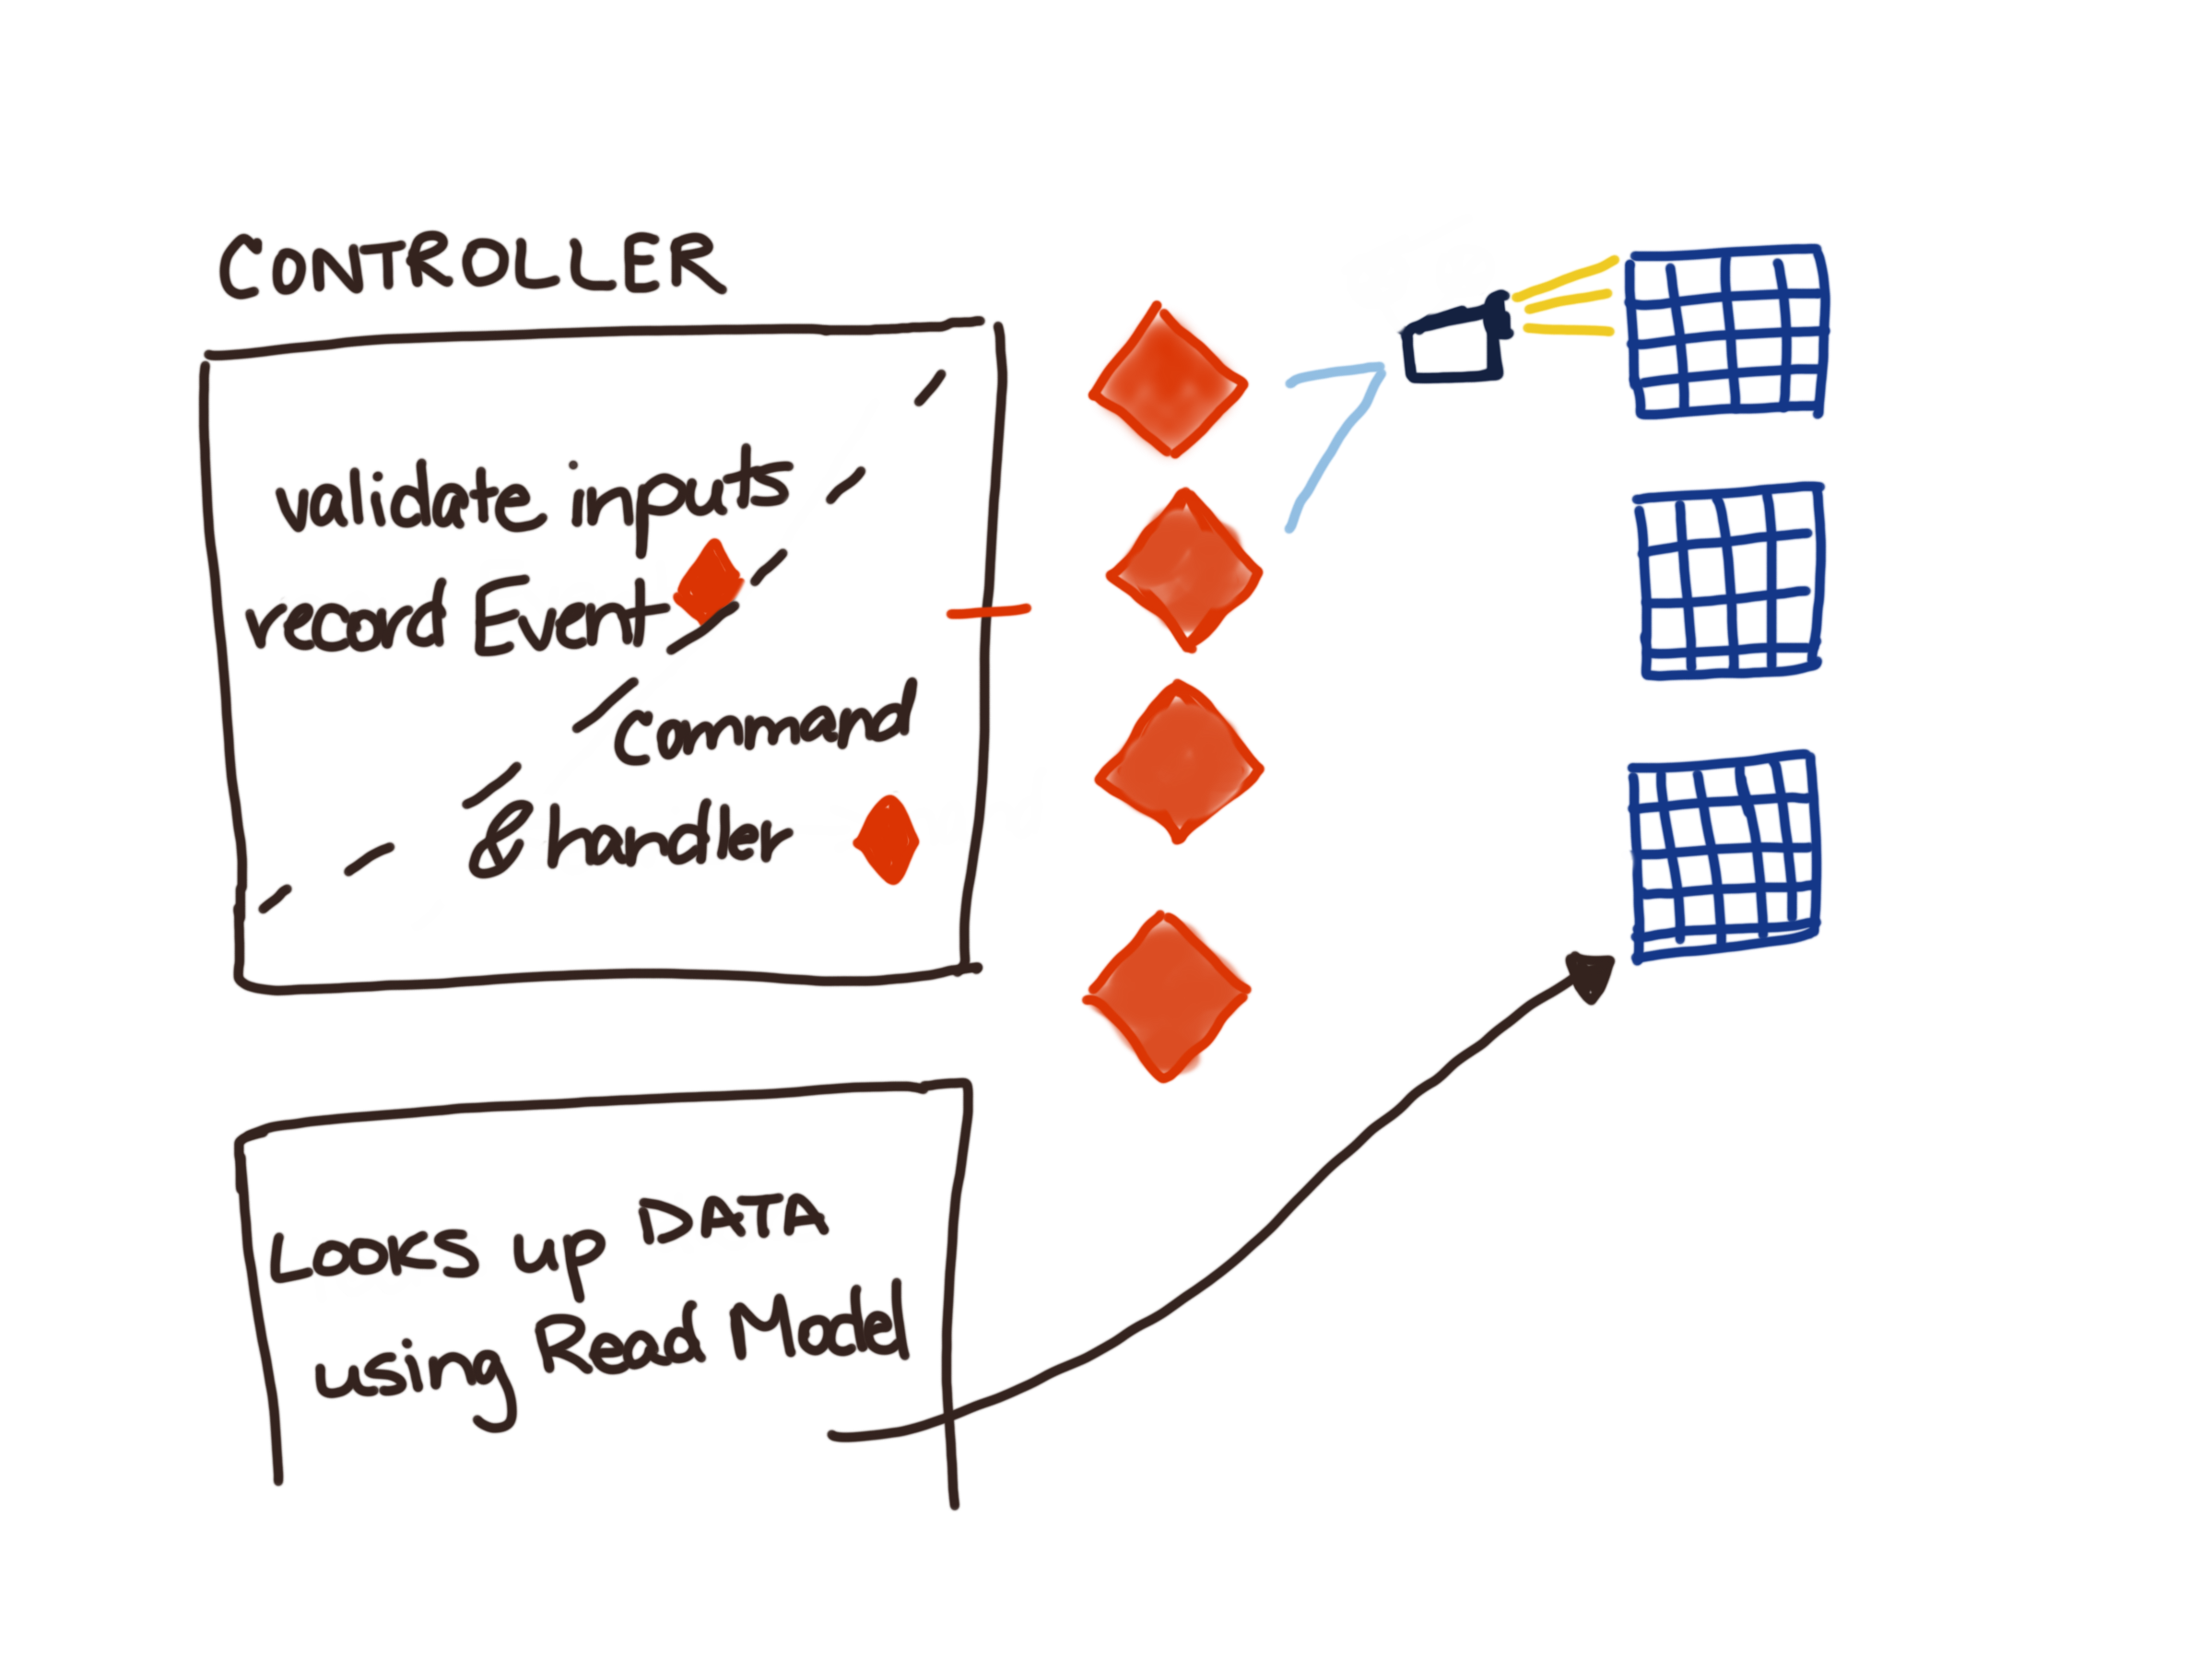 CONTROLLER
validate inputs
record Event
Command
& handler
LOOKS up DATA
using Read Model